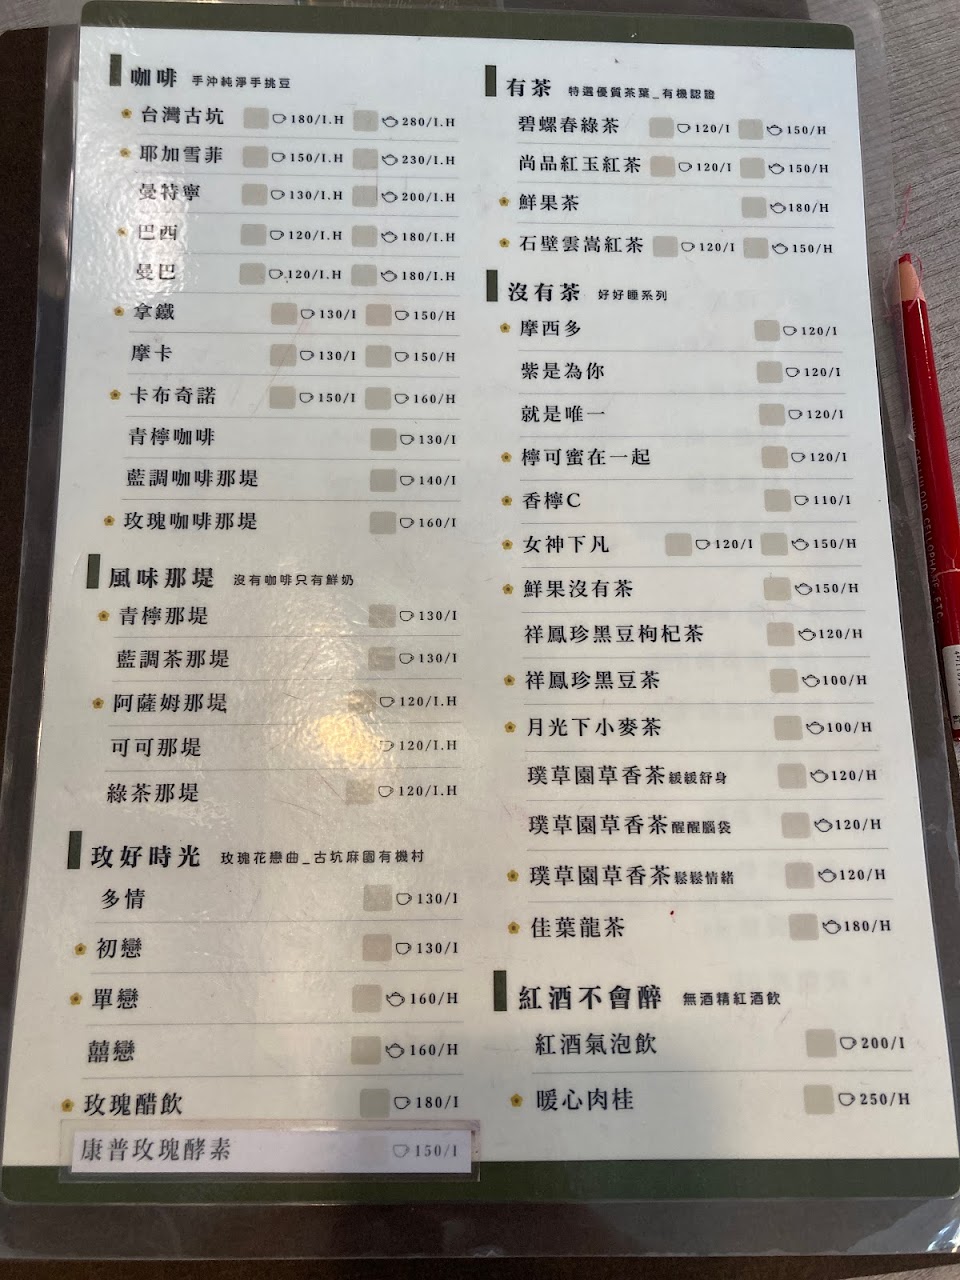 咖啡 手沖純淨手挑豆
台灣古坑 180/I.H 280/I.H
耶加雪菲 150/I.H 230/I.H
曼特寧 130/I.H 200/I.H
巴西 120/I.H 180/I.H
曼巴 120/I.H 180/I.H
拿鐵 130/I 150/H
摩卡 130/I 150/H
卡布奇諾 150/I 160/H
青檸咖啡 130/I
藍調咖啡那堤 140/I
玫瑰咖啡那堤 160/I
風味那堤 沒有咖啡只有鮮奶
青檸那堤 130/I
藍調茶那堤 130/I
阿薩姆那堤 120/I.H
可可那堤 120/I.H
綠茶那堤 120/I.H
玫好時光 玫瑰花戀曲_古坑麻園有機村
多情 130/I
初戀 130/I
單戀 160/H
囍戀 160/H
玫瑰醋飲 180/I
康普玫瑰酵素 150/I
有茶 特選優質茶葉_有機認證
碧螺春綠茶 120/I 150/H
尚品紅玉紅茶 120/I 150/H
鮮果茶 180/H
石壁雲嵩紅茶 120/I 150/H
沒有茶 好好睡系列
摩西多 120/I
紫是為你 120/I
就是唯一 120/I
檸可蜜在一起 120/I
香檸C 110/I
女神下凡 120/I 150/H
鮮果沒有茶 150/H
祥鳳珍黑豆枸杞茶 120/H
祥鳳珍黑豆茶 100/H
月光下小麥茶 100/H
璞草園草香茶緩緩舒身 120/H
璞草園草香茶醒醒腦袋 120/H
璞草園草香茶鬆鬆情緒 120/H
佳葉龍茶 180/H
紅酒不會醉 無酒精紅酒飲
紅酒氣泡飲 200/I
暖心肉桂 250/H